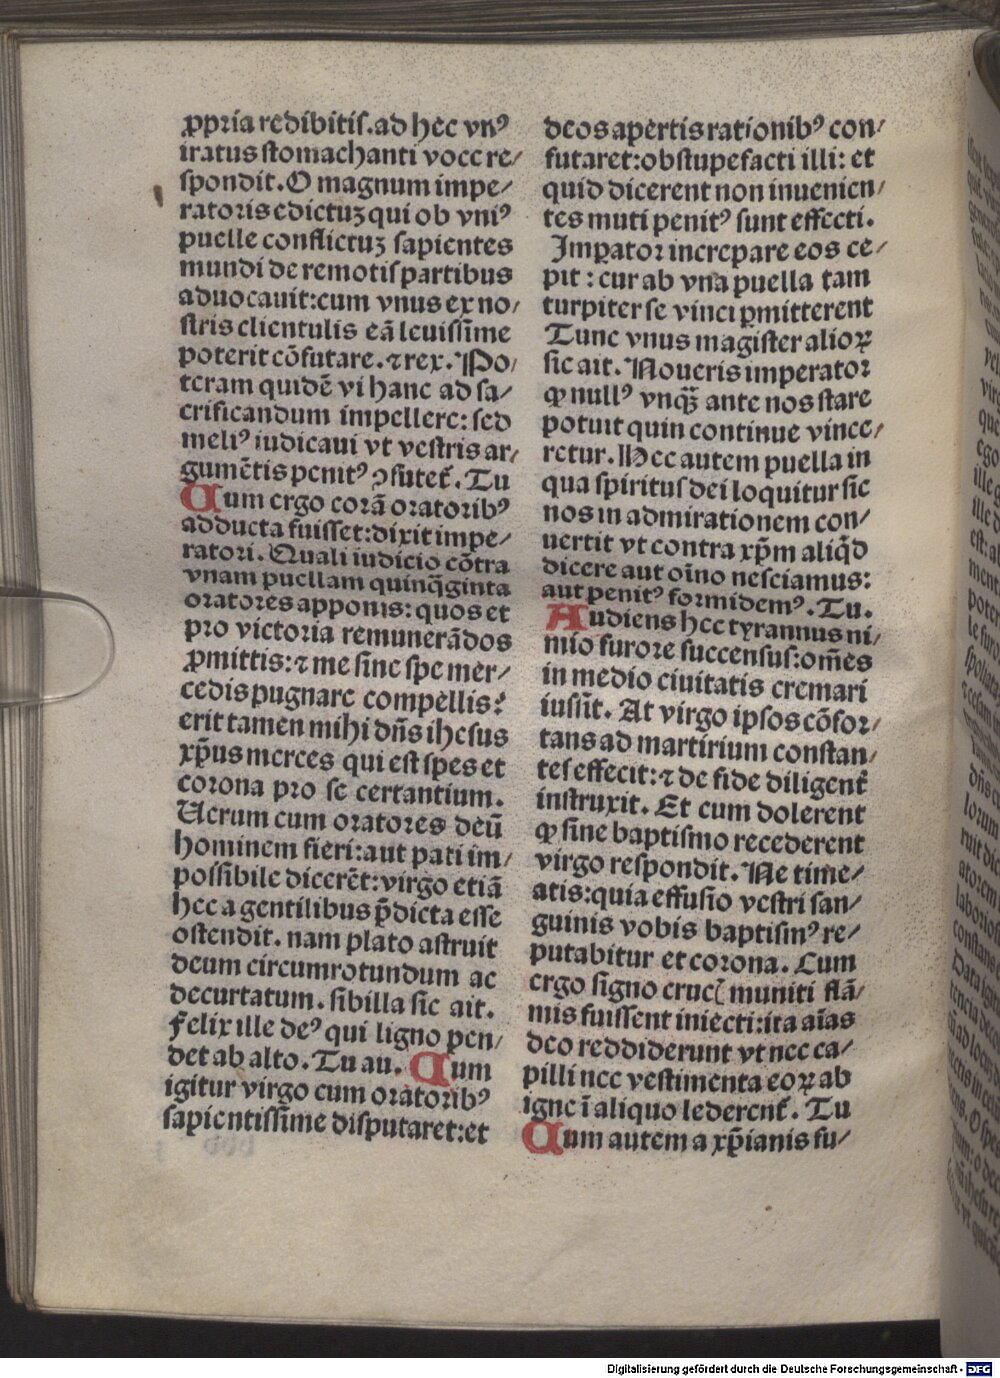 ꝓpria redibitiſ.ad hec vnꝰ
iratus ſtomachanti voce re⸗
ſpondit.O magnum impe⸗
ratoris edictuꝫ qui ob vniꝰ
puelle conflictuꝫ ſapientes
mundi de remotiſ partibus
aduocauit:cum vnus ex no⸗
ſtris clientulis eā leuiſſime
poterit cōfutare.⁊ rex. Po⸗
teram quidē vi hanc ad ſa⸗
crificandum impellere: ſed
meliꝰ iudicaui vt veſtris ar⸗
gumētis penitꝰ ꝯfutet᷑. Tu
Cum ergo corā oratoribꝰ
adducta fuiſſet:dixit impe⸗
ratori. Quali iudicio cōtra
vnam puellam quinq̄ginta
oratores apponis: quos et
pro victoria remunerādos
ꝓmittis: ⁊ me ſine ſpe mer⸗
cedis pugnare compellis?
erit tamen mihi dn̄s iheſus
xp̄us merces qui eſt ſpes et
corona pro ſe certantium.
Uerum cum oratores deū
hominem fieri:aut pati im⸗
poſſibile dicerēt:virgo etiā
hec a gentilibus p̄dicta eſſe
oſtendit. nam plato aſtruit
deum circumrotundum ac
decurtatum. ſibilla ſic ait.
Felix ille deꝰ qui ligno pen⸗
det ab alto. Tu au. Cum
igitur virgo cum oratoribꝰ
ſapientiſſime diſputaret:et
deos apertis rationibꝰ con⸗
futaret:obſtupefacti illi: et
quid dicerent non inuenien⸗
tes muti penitꝰ ſunt effecti.
Imꝑator increpare eos ce⸗
pit : cur ab vna puella tam
turpiter ſe vinci ꝑmitterent
Tunc vnus magiſter alioꝝ
ſic ait. Noueris imperator
ꝙ nullꝰ vnqꝫ̄ ante nos ſtare
potuit quin continue vince⸗
retur. Hec autem puella in
qua ſpirituſ dei loquitur ſic
nos in admirationem con⸗
uertit vt contra xp̄m aliq̇d
dicere aut oīno neſciamus:
aut penitꝰ formidemꝰ. Tu.
Audiens hec tyrannus ni⸗
mio furore ſuccenſuſ:om̄es
in medio ciuitatis cremari
iuſſit. At virgo ipſos cōfor⸗
tans ad martirium conſtan⸗
teſ effecit: ⁊ de fide diligent᷑
inſtruxit. Et cum dolerent
ꝙ ſine baptiſmo recederent
virgo reſpondit. Ne time⸗
atis:quia effuſio veſtri ſan⸗
guinis vobis baptiſmꝰ re⸗
putabitur et corona. Cum
ergo ſigno crucꝭ muniti flā⸗
mis fuiſſent iniecti:ita aīas
deo reddiderunt vt nec ca⸗
pilli nec veſtimenta eoꝝ ab
igne ī aliquo lederent᷑. Tu
Cum autem a xp̄ianis fu⸗
Digitalisierung gefördert durch die Deutsche Forschungsgemeinschaft - DFG